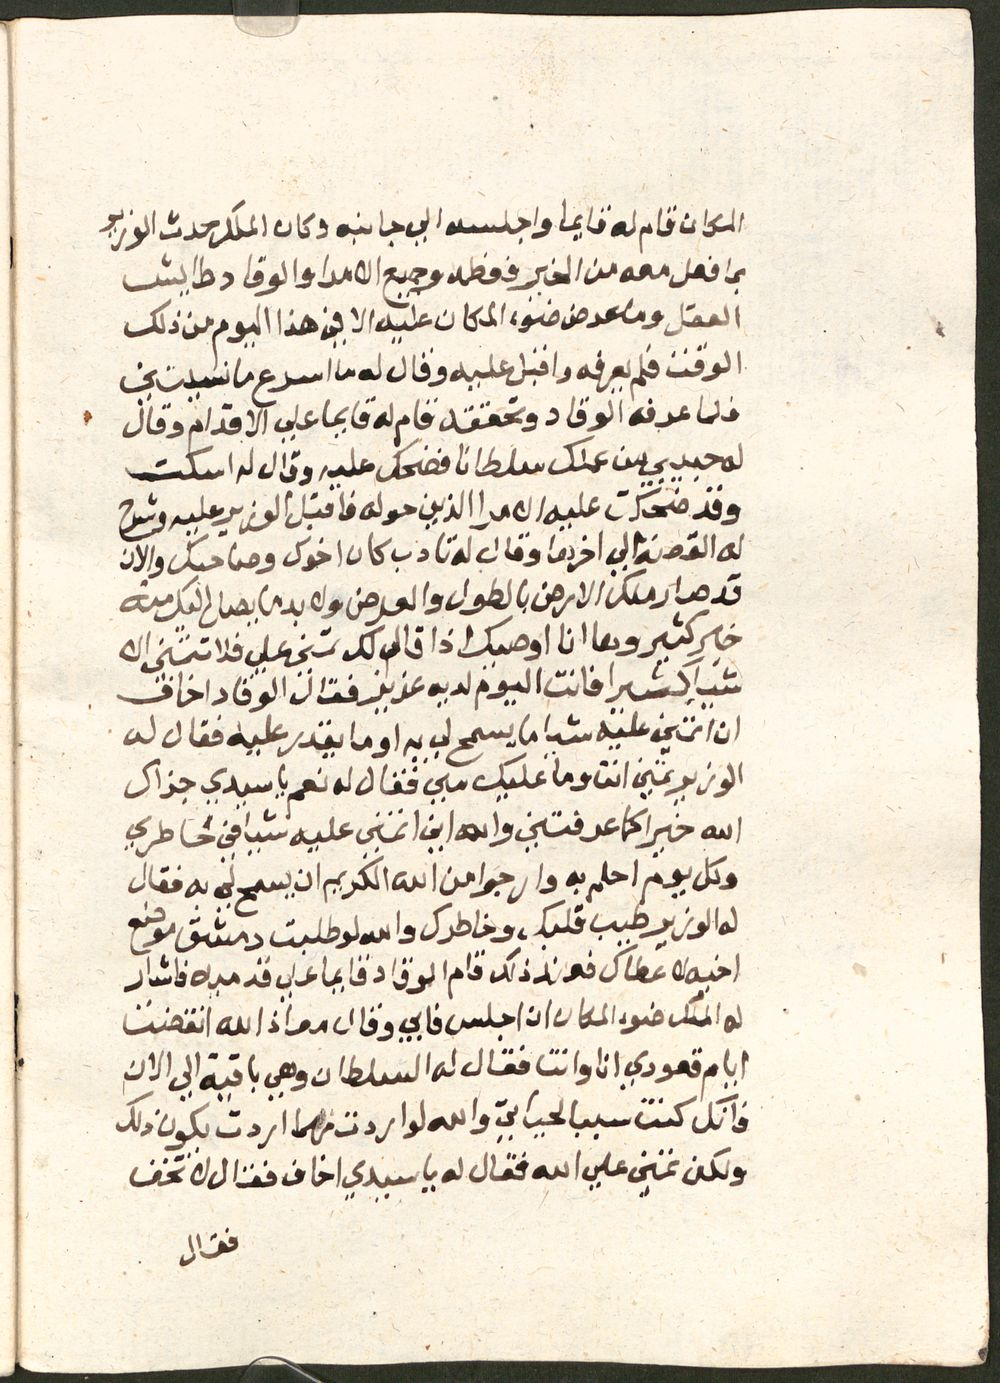 المكان قام له قايما واجلسه الي جانبه وكان الملك يحدث الوزير
بما فعل معه من الخير فعظمه وجميع الامرا والوقاد طايش
العقل وما عرض ضوء المكان عليه الا في هذا اليوم من ذلك
الوقت فلم يعرفه واقبل عليه وقال له ما اسرع ما نسيتني
فلما عرفه الوقاد وتحققه قام له قايما علي الاقدام وقال
له حبيبي من عملك سلطانا فضحك عليه وقال له اسكت
وقد ضحكت عليه الامرا الذين حوله فاقبل الوزير عليه وشرح
له القصة الي اخرها وقال له تادب كان اخوك وصاحبك والان
قد صار ملك الارض بالطول والعرض ولا بد ما يصل اليك منه
خير كثير وها انا اوصيك اذا قال لك تمني علي فلا تتمني الا
شيا كثيرا فانت اليوم لديه عزيز فقال الوقاد اخاف
ان اتمني عليه شيا ما يسمح لي به او ما يقدر عليه فقال له
الوزير تمني انت وما عليك مني فقال له نعم يا سيدي جزاك
الله خيرا كما عرفتني والله اني اتمني عليه شيا في خاطري
وكل يوم احلم به وارجوا من الله الكريم ان يسمح لي به فقال
له الوزير طيب قلبك وخاطرك والله لو طلبت دمشق موضع
اخيه لاعطاك فعند ذلك قام الوقاد قايما علي قدميه فاشار
له الملك ضوء المكان ان اجلس فابي وقال معاذ الله انقضت
ايام قعودي انا وانت فقال له السلطان وهي باقية الي الان
فانك كنت سببا لحياتي والله لو اردت مهما اردت يكون ذلك
ولكن تمني علي الله فقال له يا سيدي اخاف فقال لا تخف
فقال